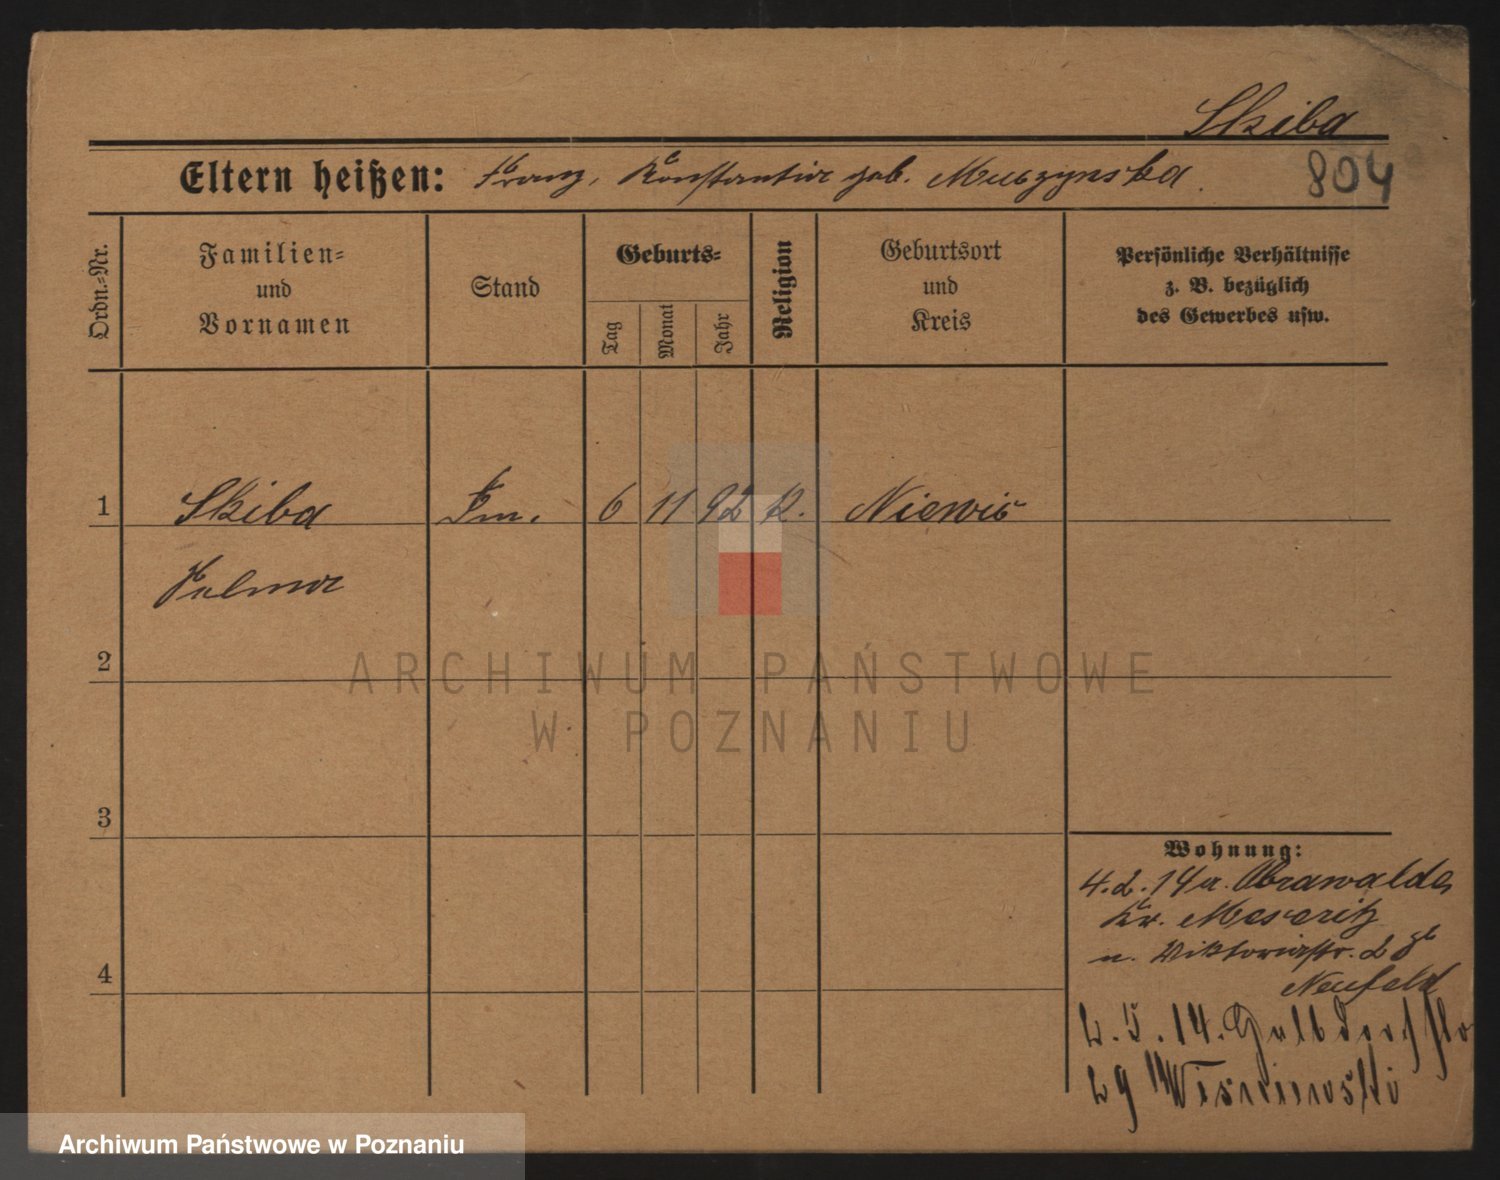 Skiba
Eltern heißen: Franz, Konstantia geb. Muszynska.
804
Ordn.-Nr.
Familien-
und
Vornamen
Stand
Geburts-
Tag
Monat
Jahr
Religion
Geburtsort
und
Kreis
Persönliche Verhältnisse
z. B. bezüglich
des Gewerbes usw.
1 Skiba 6 11 92 K. Niewis
2
3
4
Wohnung:
4.2.14 a. Obrawalde
Kr. Meseritz
n. Viktoriastr. 2
Neufeld
2.5.14.
ARCHIWUM PAŃSTWOWE
W POZNANIU
Archiwum Państwowe w Poznaniu